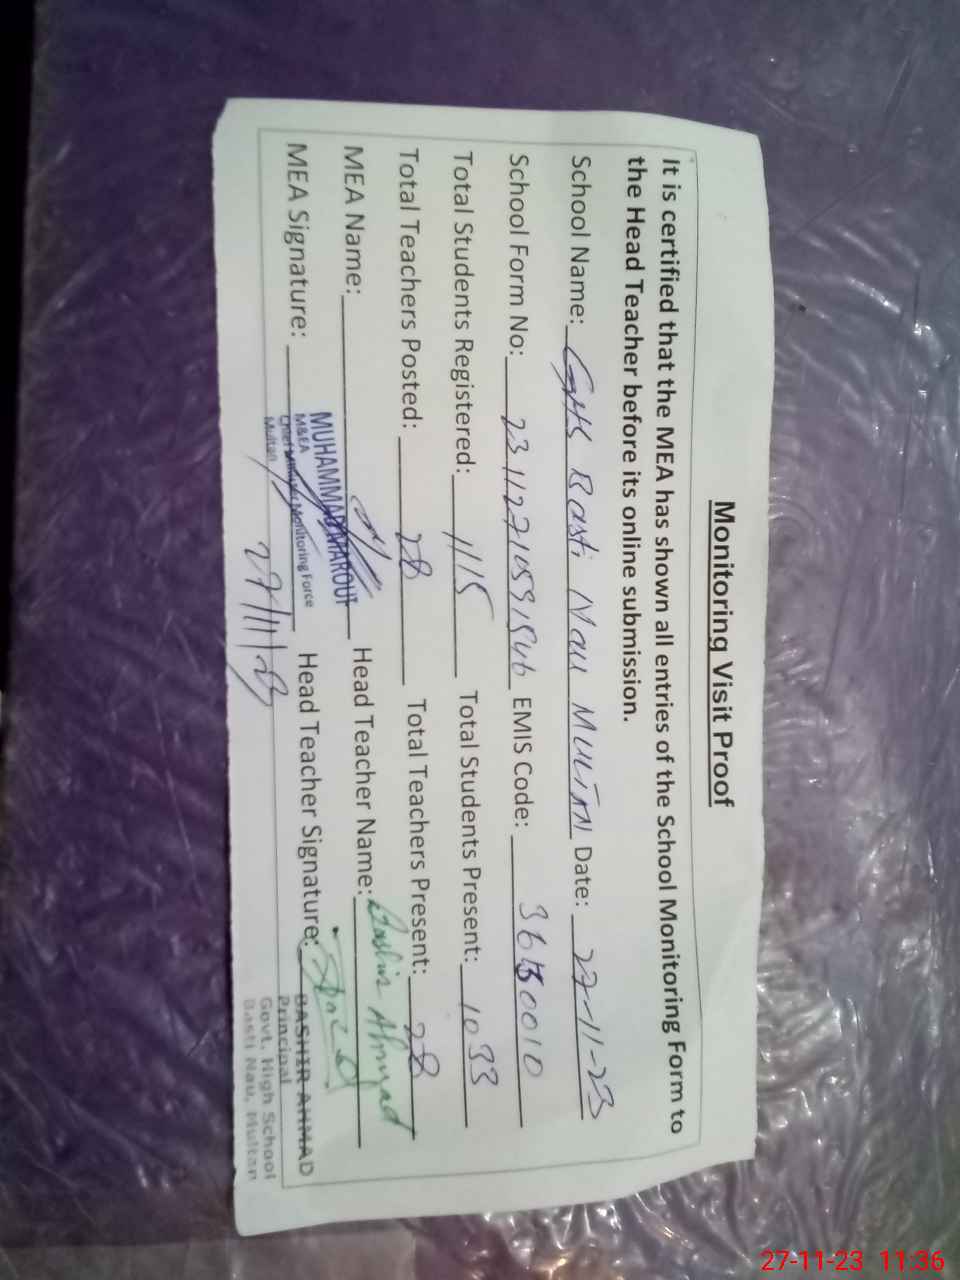 Monitoring Visit Proof
It is certified that the MEA has shown all entries of the School Monitoring Form to
the Head Teacher before its online submission.
School Name: GHS Basti Nau Multan Date: 27-11-23
School Form No: EMIS Code:
Total Students Registered: 1115 Total Students Present: 1033
Total Teachers Posted: 28 Total Teachers Present: 28
MEA Name: MUHAMMAD MAROUF Head Teacher Name: Bashir Ahmad
MEA Signature: Head Teacher Signature:
M&EA
Chief Minister Monitoring Force
Multan
27/11/23
BASHIR AHMAD
Principal
Govt. High School
Basti Nau, Multan
27-11-23 11:36